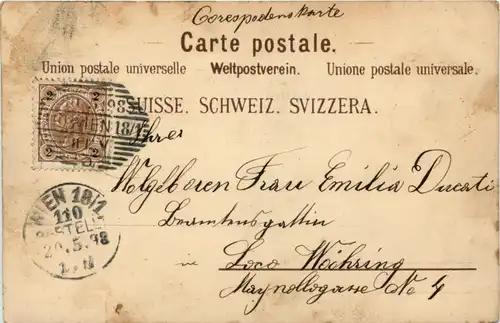 Corespodenskarte
Carte postale.
Union postale universelle Weltpostverein. Unione postale universale.
SUISSE. SCHWEIZ. SVIZZERA.
2 2
WIEN 18/1
Ihrer
Wolgeboren Frau Emilia Ducati
Beamtensgattin
in Loco Währing
WIEN 18/1
110
BESTELLT
20.5.98
Maynollogasse No 4